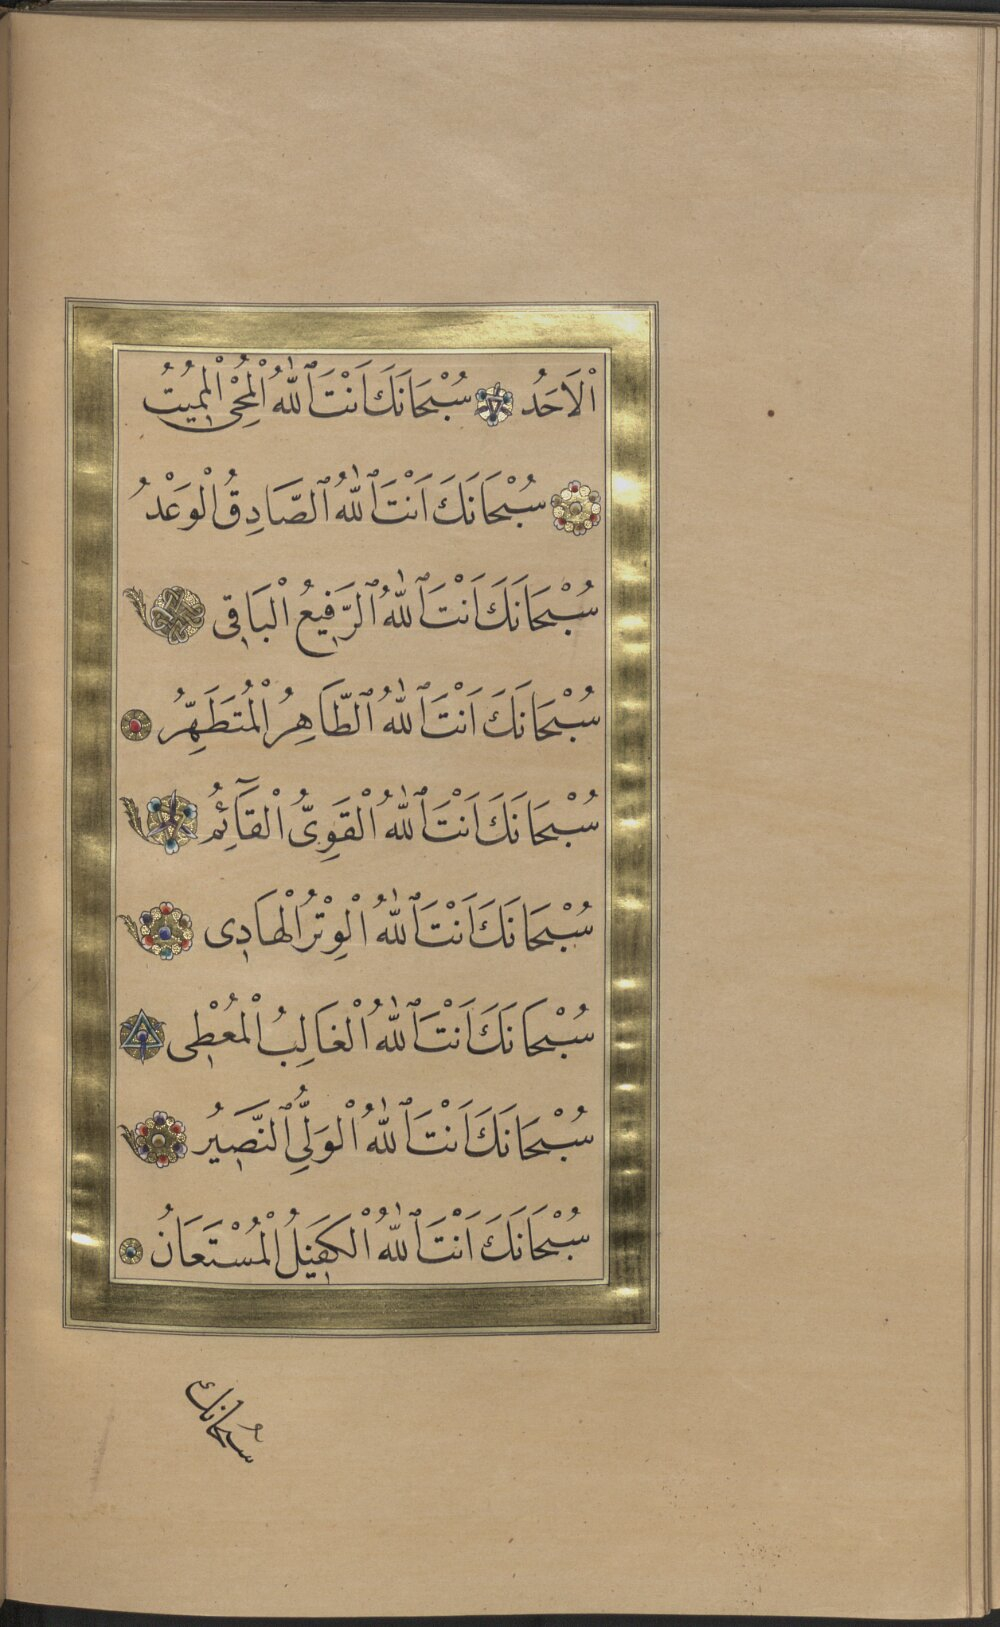 اْلاَحَدُ سُبْحَانَكَ اَنْتَ ٱللّٰهُ الْمُحْيِى الْمُمِيتُ
سُبْحَانَكَ اَنْتَ ٱللّٰهُ ٱلصَّادِقُ الْوَعْدُ
سُبْحَانَكَ اَنْتَ ٱللّٰهُ ٱلرَّفِيعُ الْبَاقِى
سُبْحَانَكَ اَنْتَ ٱللّٰهُ ٱلطَّاهِرُ الْمُتَطَهِّرُ
سُبْحَانَكَ اَنْتَ ٱللّٰهُ الْقَوِىُّ الْقَآئِمُ
سُبْحَانَكَ اَنْتَ ٱللّٰهُ الْوِتْرُ الْهَادِى
سُبْحَانَكَ اَنْتَ ٱللّٰهُ الْغَالِبُ الْمُعْطِى
سُبْحَانَكَ اَنْتَ ٱللّٰهُ الْوَلِىُّ ٱلنَّصِيرُ
سُبْحَانَكَ اَنْتَ ٱللّٰهُ الْكَفِيلُ الْمُسْتَعَانُ
سبحانك